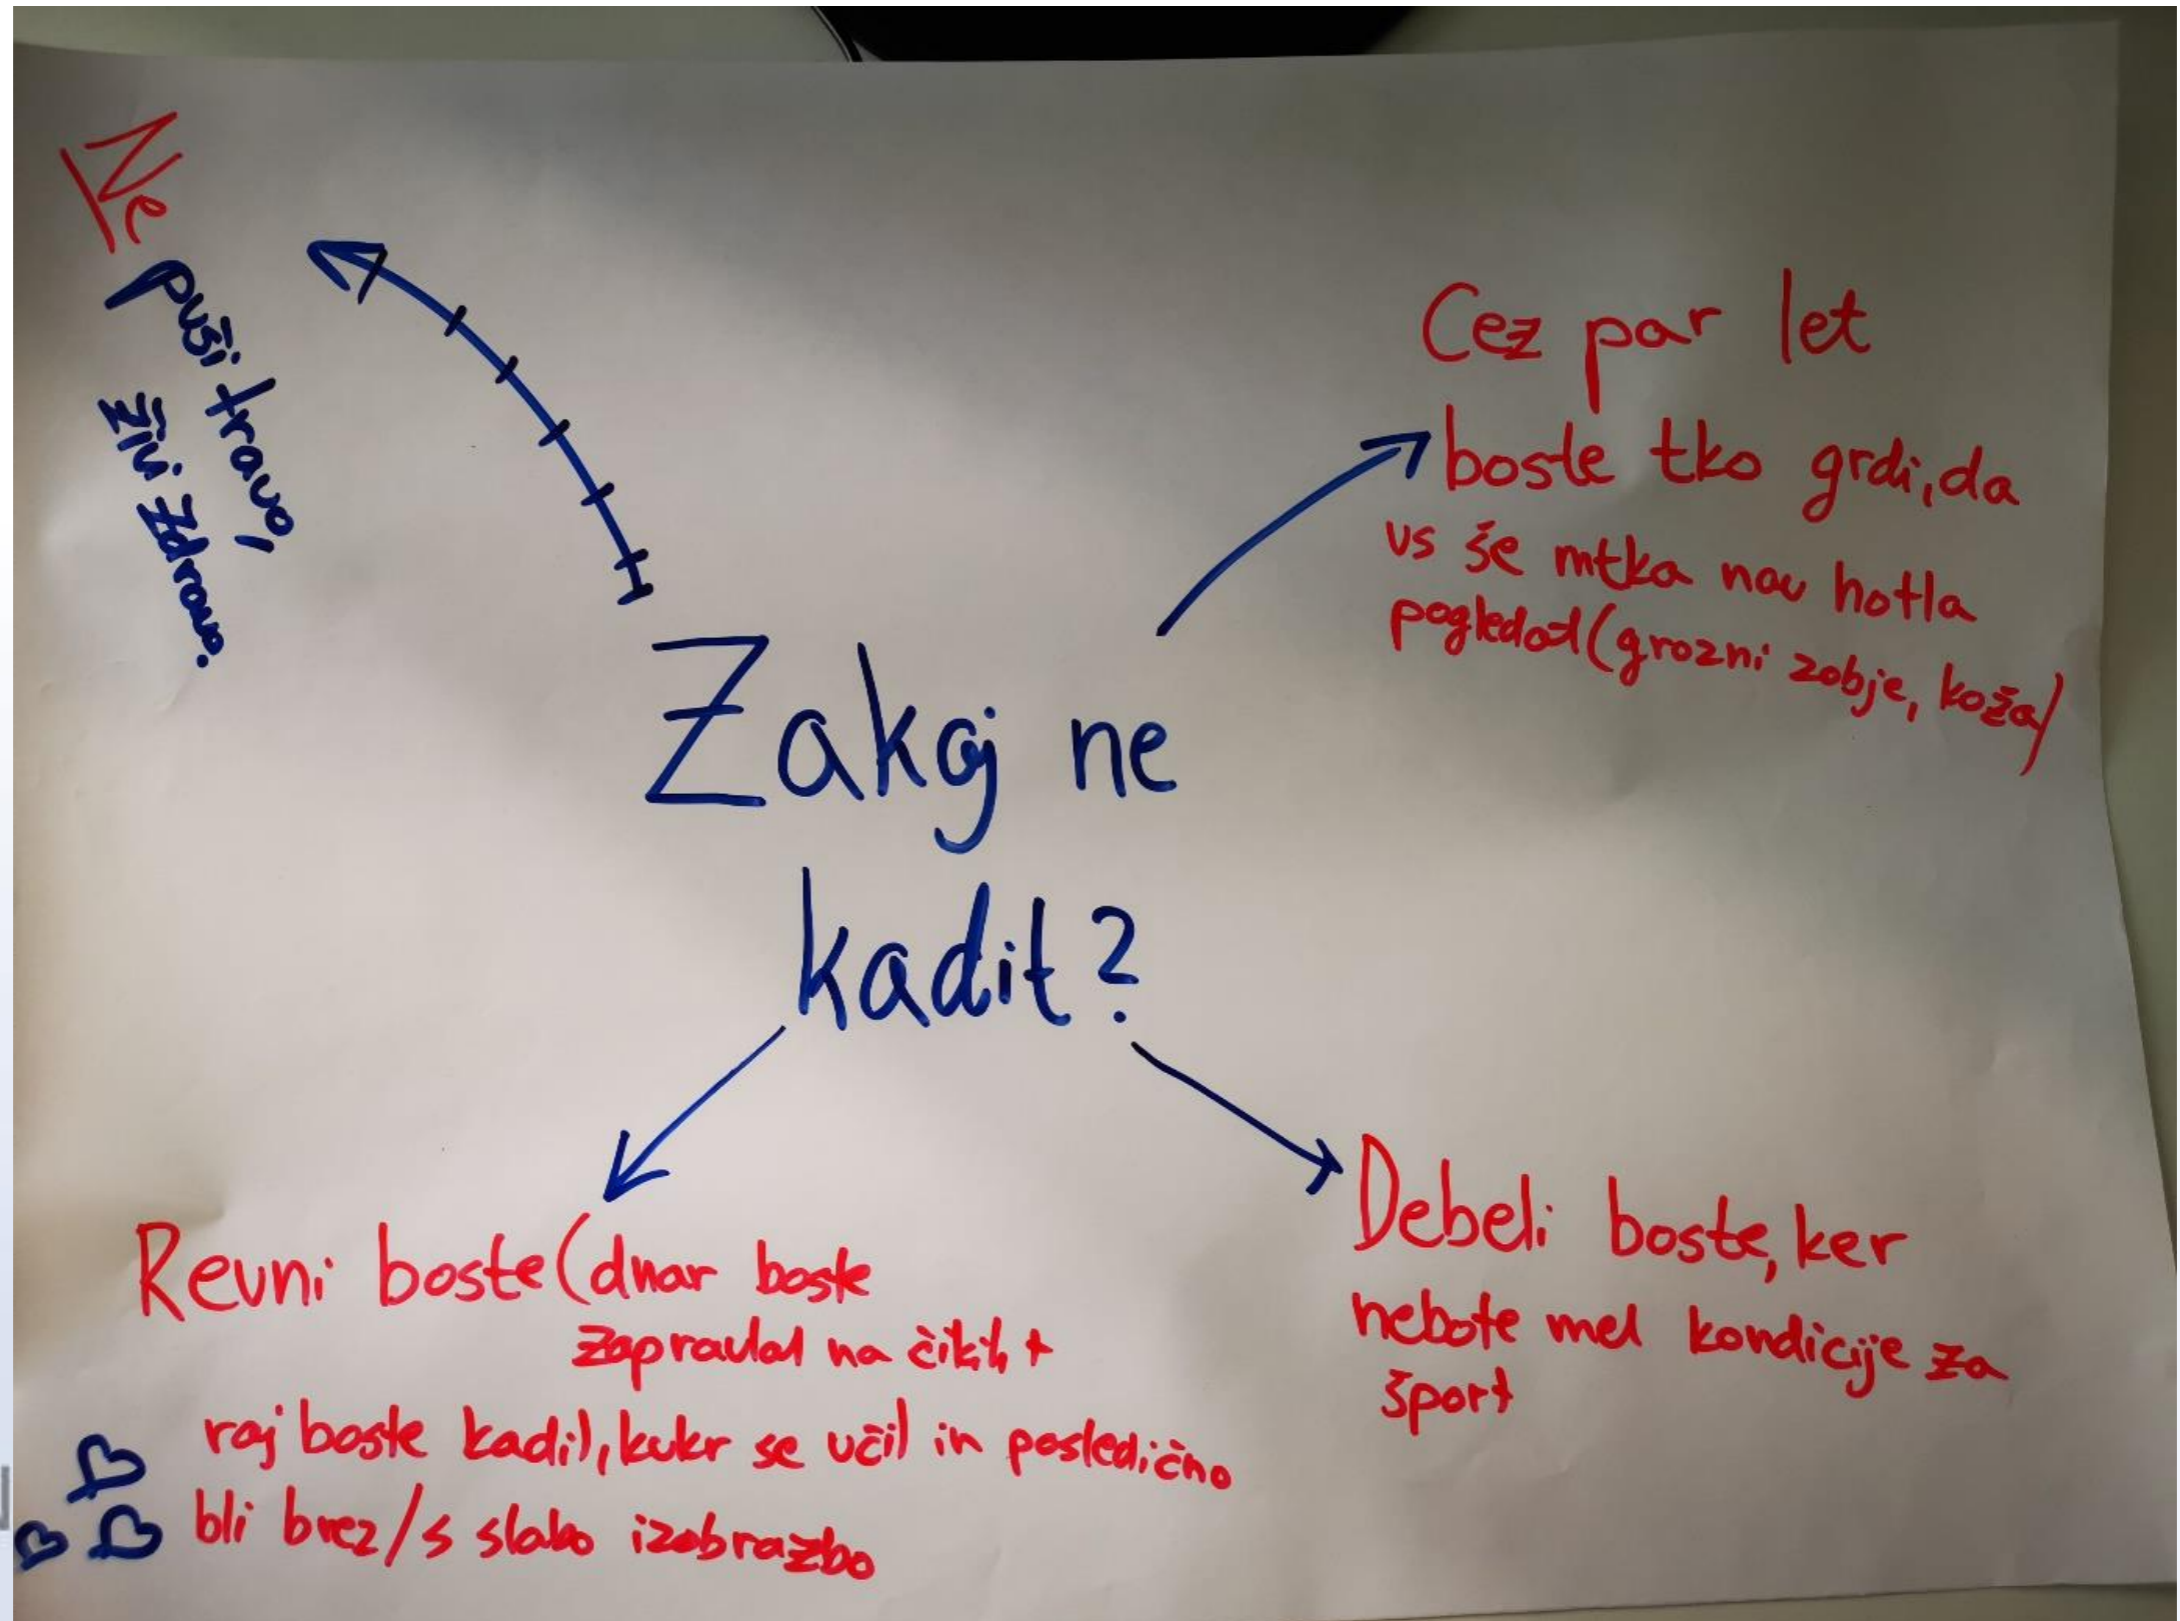 Ne
puši travo,
živi zdravo.
Cez par let
boste tko grdi, da
vs še mtka nav hotla
pogledat (grozni zobje, koža)
Zakaj ne
kadit?
Revni boste (dnar boste
zapravlal na čikih +
raj boste kadil, kukr se učil in posledično
bli brez/s slabo izobrazbo
Debeli boste, ker
nebote mel kondicije za
šport